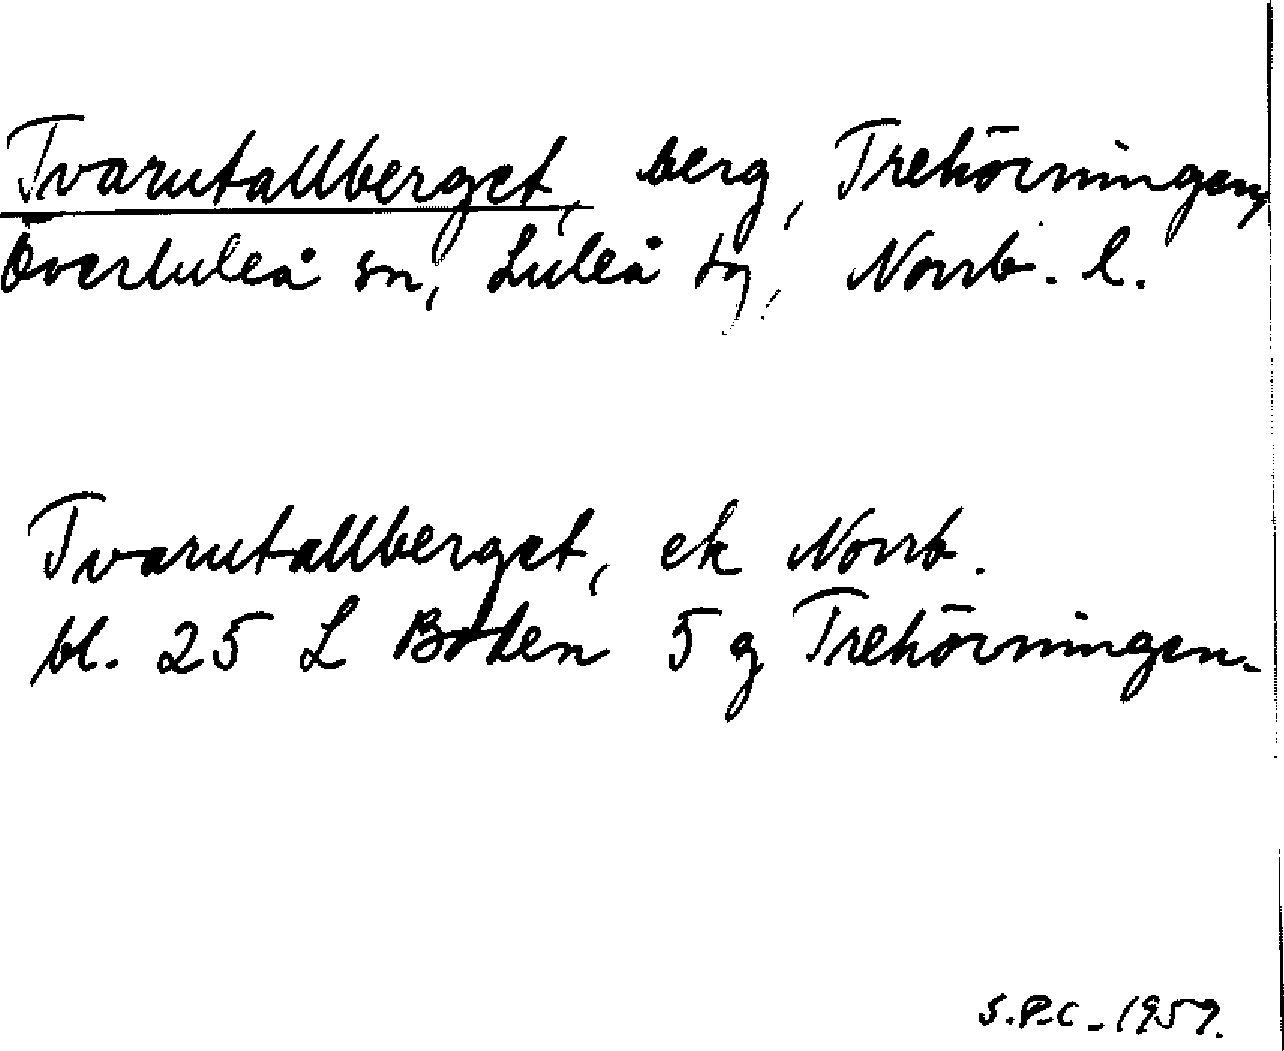 Tvarutallberget, berg, Trehörningen,
Överluleå sn, Luleå tg, Norrb. l.
Tvarutallberget, ek Norrb.
bl. 25 L Boden 5 g Trehörningen.
S.P.C. 1959.